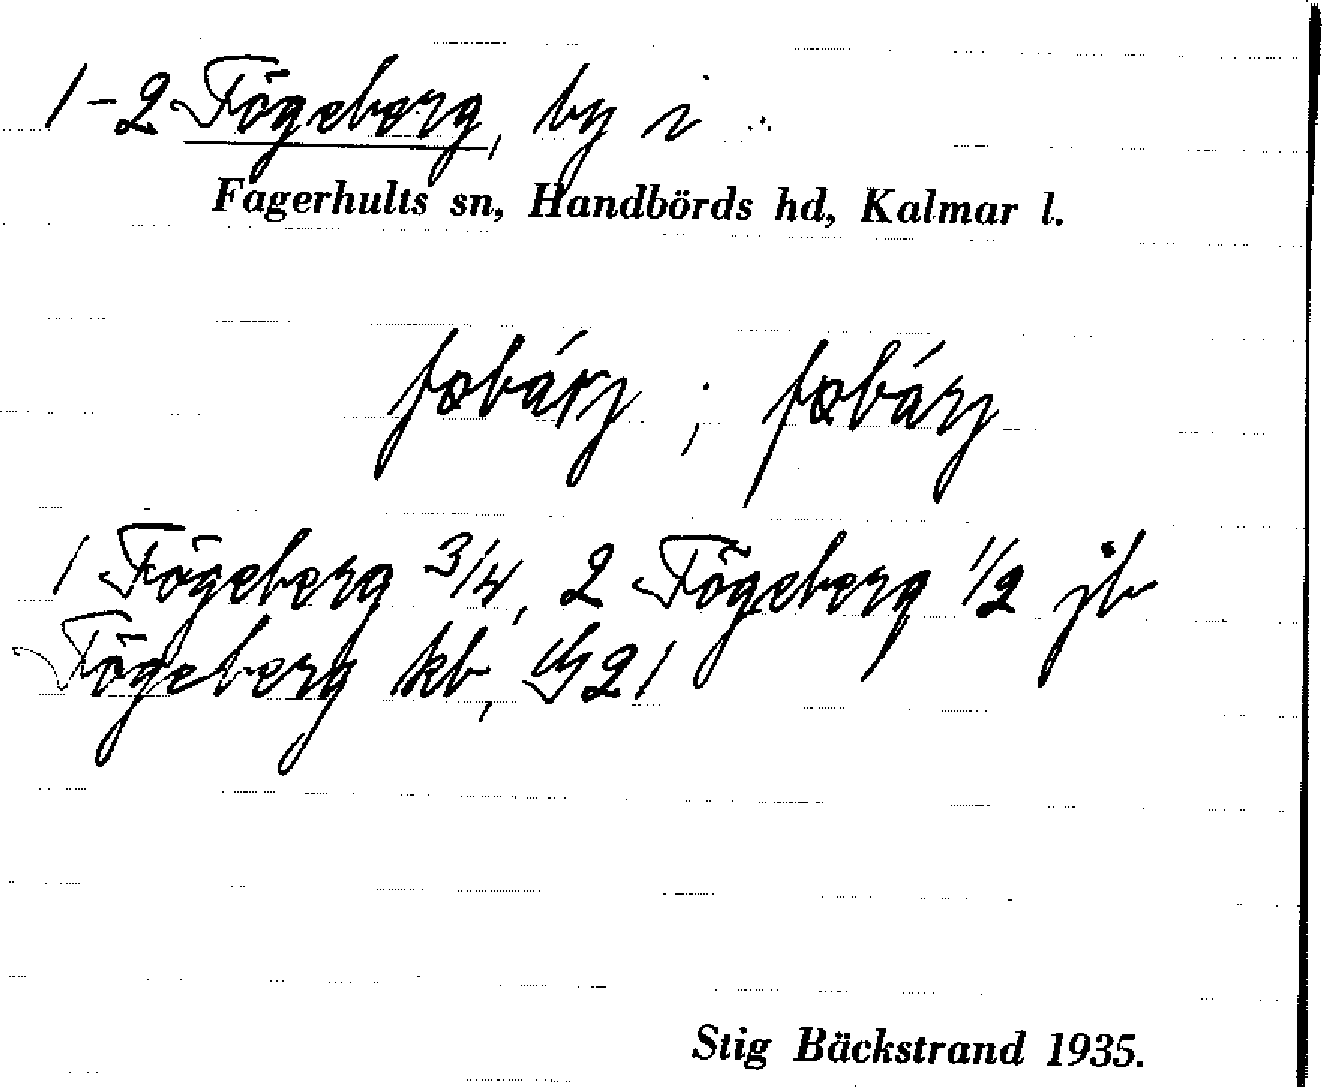 1-2 Fögeberg, by i
Fagerhults sn, Handbörds hd, Kalmar l.
1 Fögeberg 3/4, 2 Fögeberg 1/2 jb
Fögeberg kb, 21
Stig Bäckstrand 1935.